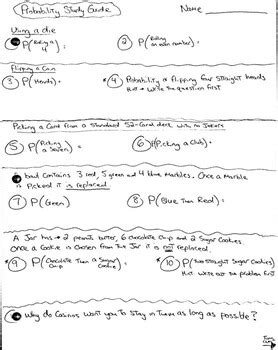 Probability Study Guide Name
Using a die
① P(Rolling a 4) =
② P(Rolling an even number) =
Flipping a Coin
③ P(Heads) =
*④ Probability of flipping four straight heads
Hint → Write the question first
Picking a Card from a Standard 52-Card deck with no Jokers
⑤ P(Picking a Seven)
⑥ P(Picking a Club) =
bag contains 3 red, 5 green and 4 blue Marbles. Once a Marble
is Picked it is replaced.
⑦ P(Green)
⑧ P(Blue Then Red) =
A Jar has → 2 peanut butter, 6 chocolate Chip and 2 Sugar Cookies
Once a Cookie is Chosen from the Jar it is not replaced
*⑨ P(Chocolate Chip Then a Sugar Cookie) =
*⑩ P(Two Straight Sugar Cookies)
Hint: Write out the problem first
Why do Casinos Want You to Stay in Them as long as possible?